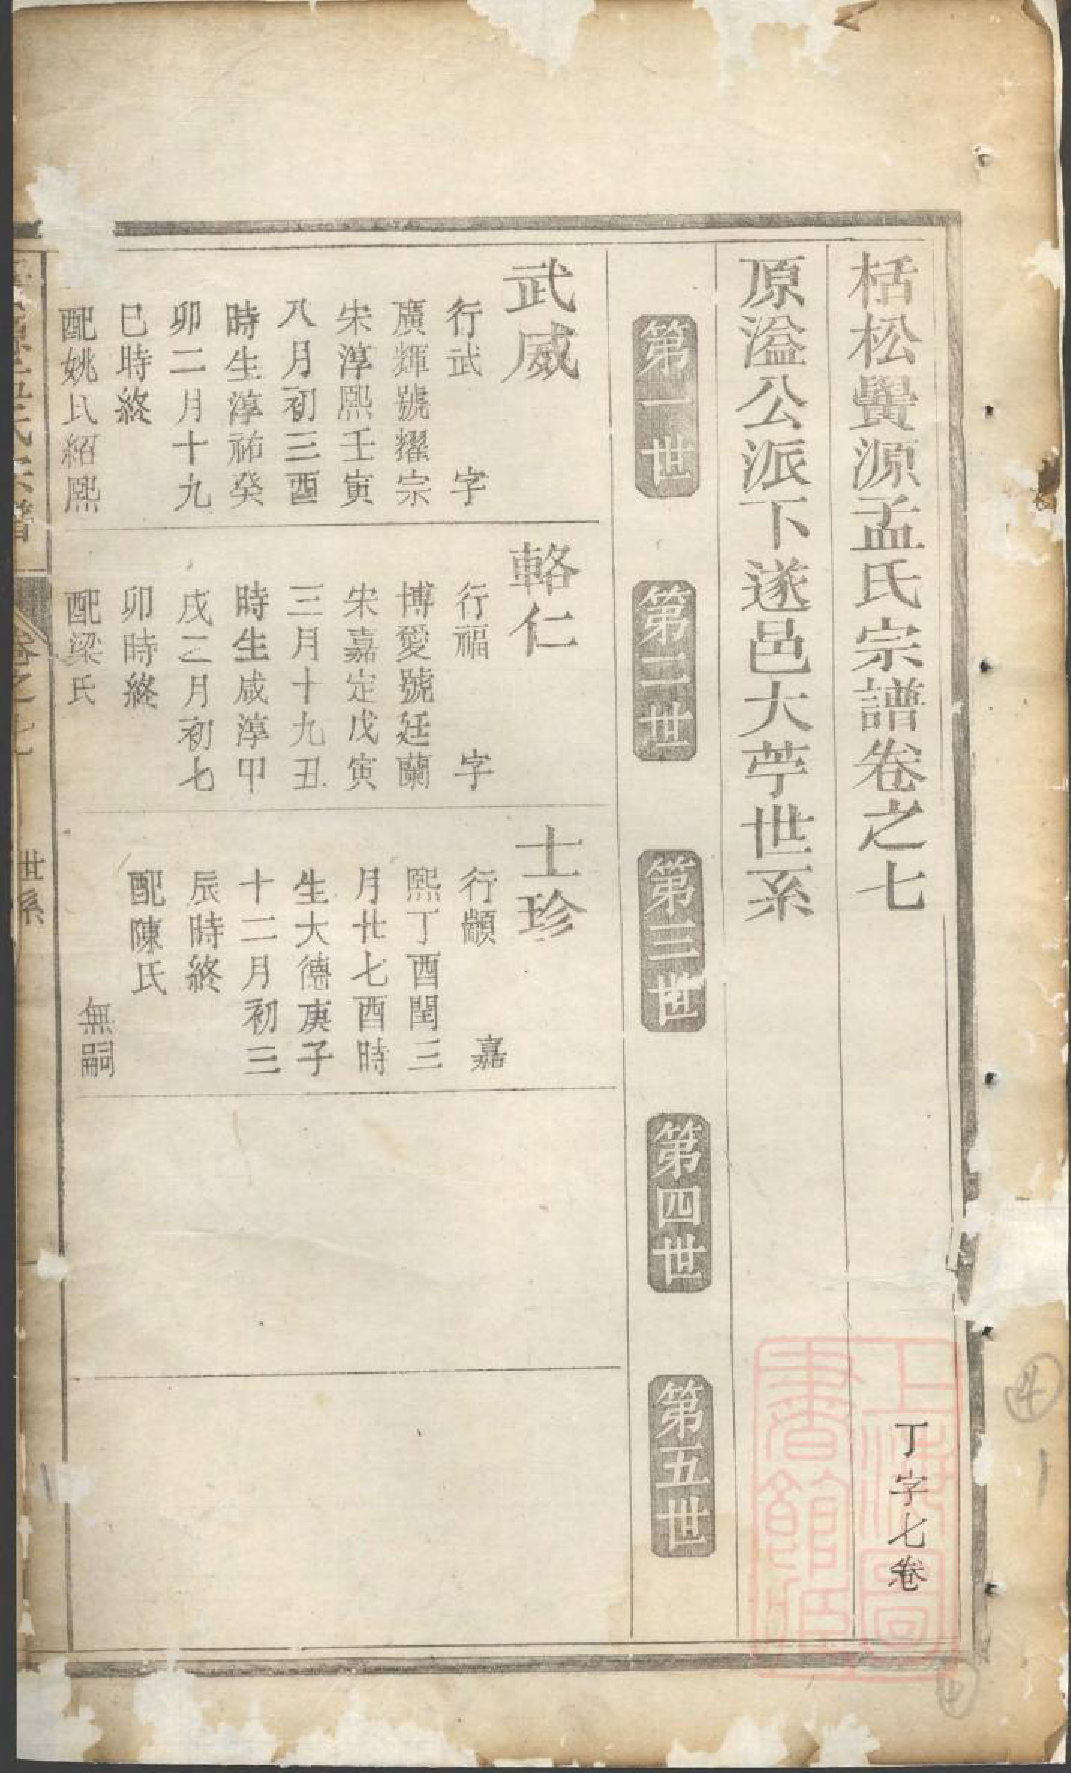 栝松黌源孟氏宗譜卷之七
丁字七卷
原溢公派下遂邑大苧世系
第一世
第二世
第三世
第四世
第五世
武威
行武 字
廣輝號耀宗
宋淳熙壬寅
八月初三酉
時生淳祐癸
卯二月十九
巳時終
配姚氏紹熙
輅仁
行福 字
博愛號廷蘭
宋嘉定戊寅
三月十九丑
時生咸淳甲
戌二月初七
卯時終
配梁氏
士珍
行顓 嘉
熙丁酉閏三
月廿七酉時
生大德庚子
十二月初三
辰時終
配陳氏
無嗣
氏宗譜
卷之七
世系
上海圖書館藏
4